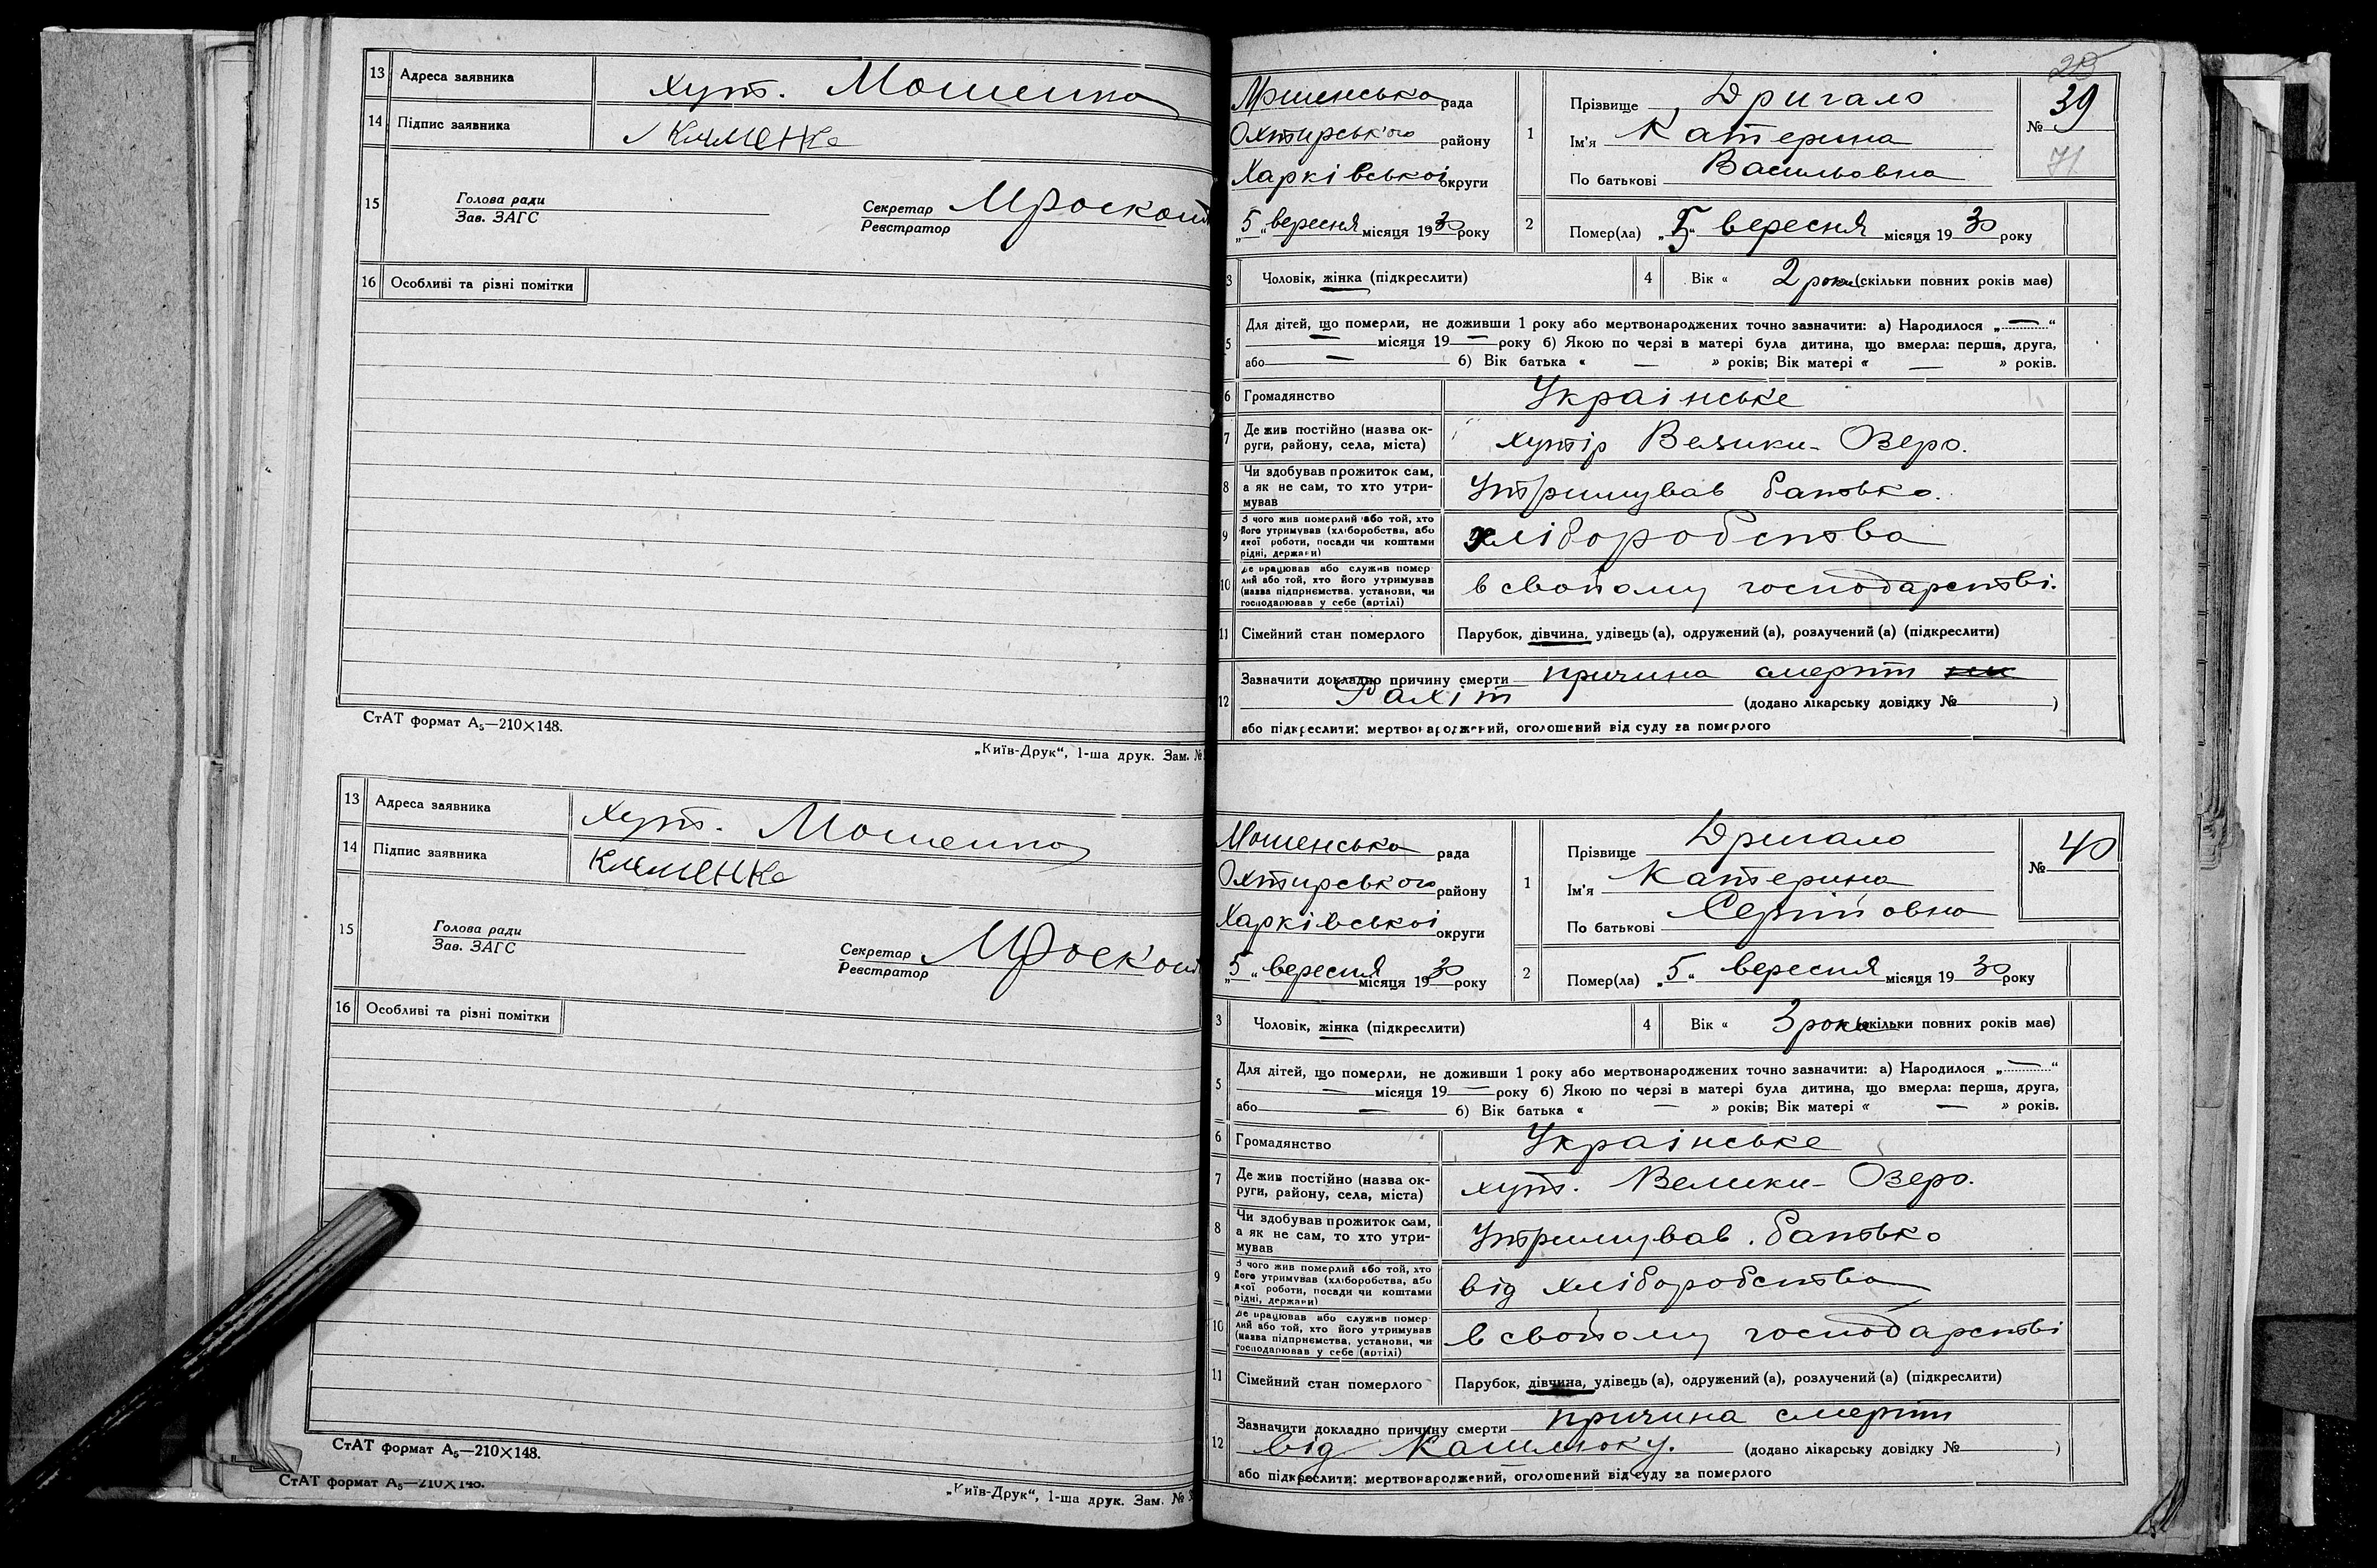 13 Адреса заявника хут. Мошенка
14 Підпис заявника Клименко
15 Голова ради
Зав. ЗАГС
Секретар
Реєстратор
16 Особливі та різні помітки
СтАТ формат А₅—210×148.
„Київ-Друк“, 1-ша друк. Зам. №
13 Адреса заявника хут. Мошенка
14 Підпис заявника Клименко
15 Голова ради
Зав. ЗАГС
Секретар
Реєстратор
16 Особливі та різні помітки
СтАТ формат А₅—210×148.
СтАТ формат А₅—210×148.
„Київ-Друк“, 1-ша друк. Зам. №
Мошенська рада
Охтирського району
Харківської округи
„5“ вересня місяця 1930 року
1 Прізвище Дригало
Ім'я Катерина
По батькові Васильовна
№ 39
71
2 Помер(ла) „5“ вересня місяця 1930 року
3 Чоловік, жінка (підкреслити)
4 Вік « 2 роки (скільки повних років має)
5 Для дітей, що померли, не доживши 1 року або мертвонароджених точно зазначити: а) Народилося „—“
— місяця 19— року б) Якою по черзі в матері була дитина, що вмерла: перша, друга,
або — б) Вік батька « — » років; Вік матері « — » років.
6 Громадянство Украінське
7 Де жив постійно (назва ок-
руги, району, села, міста) хутір Велики-Озеро.
8 Чи здобував прожиток сам,
а як не сам, то хто утри-
мував Утримував батько.
9 З чого жив померлий або той, хто
його утримував (хліборобства, або
якої роботи, посади чи коштами
рідні, держави) хліборобства
10 Де працював або служив помер
лий або той, хто його утримував
(назва підприємства, установи, чи
господарював у себе (артілі) в свойому господарстві.
11 Сімейний стан померлого Парубок, дівчина, удівець (а), одружений (а), розлучений (а) (підкреслити)
12 Зазначити докладно причину смерти причина смерти
Рахіт (додано лікарську довідку № )
або підкреслити: мертвонароджений, оголошений від суду за померлого
Мошенська рада
Охтирського району
Харківської округи
„5“ вересня місяця 1930 року
1 Прізвище Дригало
Ім'я Катерина
По батькові Сергійовна
№ 40
2 Помер(ла) „5“ вересня місяця 1930 року
3 Чоловік, жінка (підкреслити)
4 Вік « 3 роки (скільки повних років має)
5 Для дітей, що померли, не доживши 1 року або мертвонароджених точно зазначити: а) Народилося „—“
— місяця 19— року б) Якою по черзі в матері була дитина, що вмерла: перша, друга,
або — б) Вік батька « — » років; Вік матері « — » років.
6 Громадянство Украінське
7 Де жив постійно (назва ок-
руги, району, села, міста) хут. Велики-Озеро.
8 Чи здобував прожиток сам,
а як не сам, то хто утри-
мував Утримував. батько
9 З чого жив померлий або той, хто
його утримував (хліборобства, або
якої роботи, посади чи коштами
рідні, держави) від хліборобства
10 Де працював або служив помер
лий або той, хто його утримував
(назва підприємства, установи, чи
господарював у себе (артілі) в свойому господарстві
11 Сімейний стан померлого Парубок, дівчина, удівець (а), одружений (а), розлучений (а) (підкреслити)
12 Зазначити докладно причину смерти причина смерти
від Кашлюку. (додано лікарську довідку № )
або підкреслити: мертвонароджений, оголошений від суду за померлого